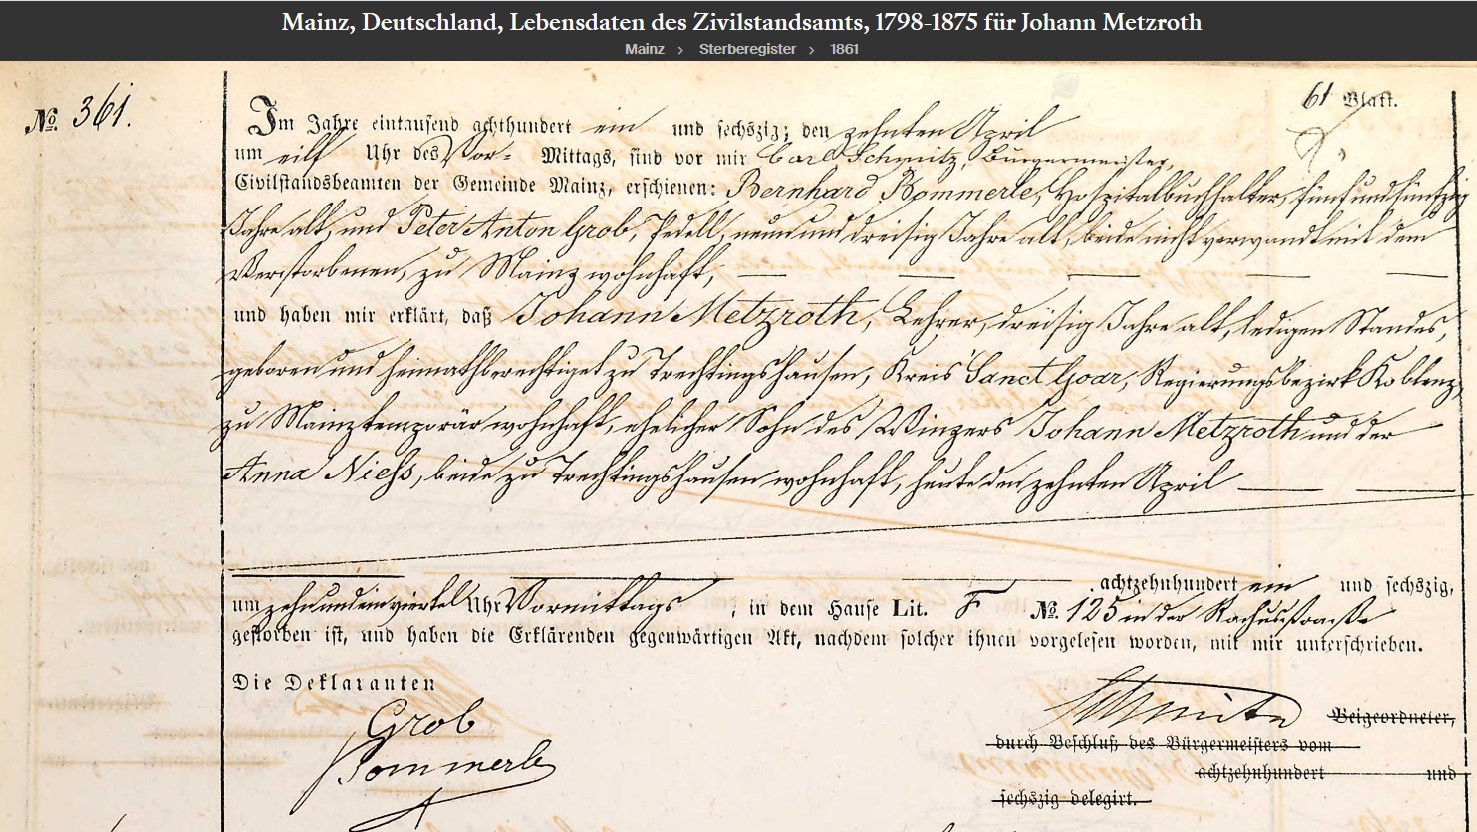 Mainz, Deutschland, Lebensdaten des Zivilstandsamts, 1798-1875 für Johann Metzroth
Mainz > Sterberegister > 1861
61 Blatt.
No. 361.
Im Jahre eintausend achthundert ein und sechszig; den zehnten April
um eilf Uhr des Vor- Mittags, sind vor mir Carl Schmitz, Bürgermeister,
Civilstandsbeamten der Gemeinde Mainz, erschienen: Bernhard Bommerle, Hospitalbuchhalter, fünfundfünfzig
Jahre alt, und Peter Anton Grob, Pedell, neunundreisig Jahre alt, beide nicht verwandt mit dem
Verstorbenen, zu Mainz wohnhaft,
und haben mir erklärt, daß Johann Metzroth, Lehrer, dreisig Jahre alt, ledigen Standes,
geboren und heimathberechtiget zu Trechtingshausen, Kreis Sanct Goar, Regierungsbezirk Koblenz,
zu Mainz temporär wohnhaft, ehelicher Sohn des Winzers Johann Metzroth und der
Anna Niess, beide zu Trechtingshausen wohnhaft, heute den zehnten April
achtzehnhundert ein und sechszig,
um zehn und ein viertel Uhr Vormittags, in dem Hause Lit. F No. 125 in der Rochusstraße
gestorben ist, und haben die Erklärenden gegenwärtigen Akt, nachdem solcher ihnen vorgelesen worden, mit mir unterschrieben.
Die Deklaranten
Grob
Bommerle
Schmitz
Beigeordneter,
durch Beschluß des Bürgermeisters vom
achtzehnhundert und
sechszig delegirt.